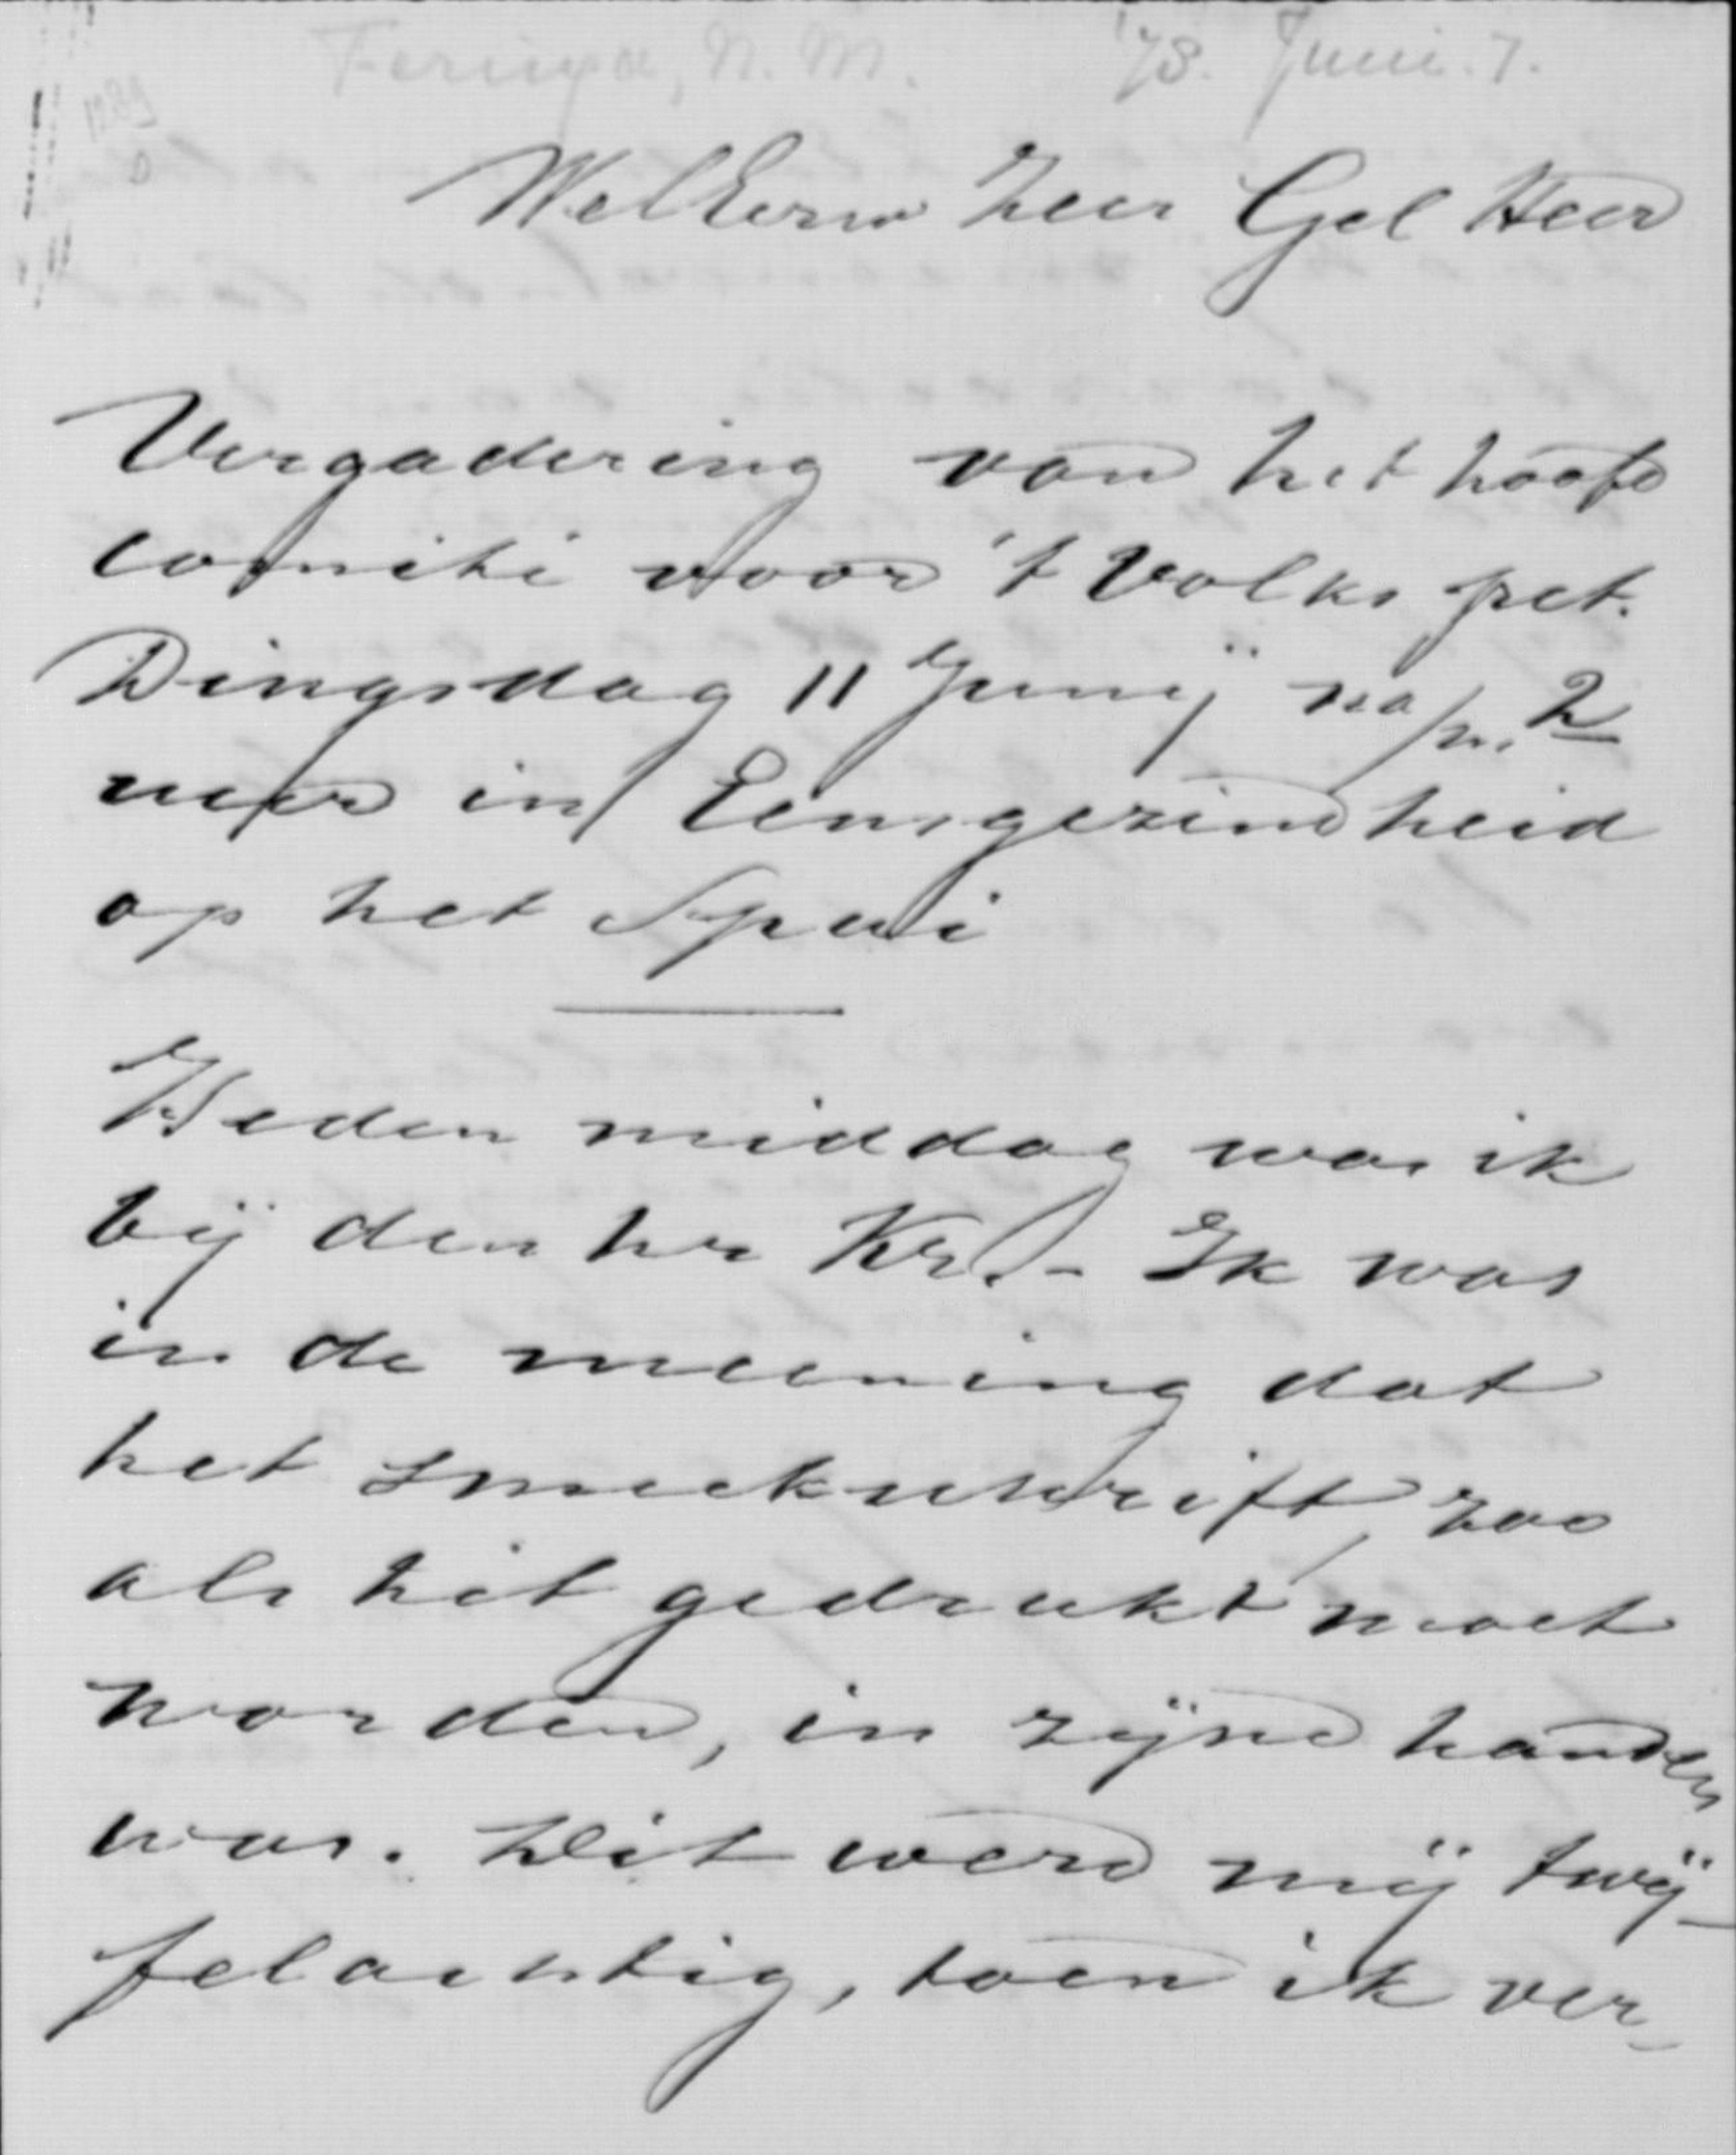 Feringa, N. M. '78. Juni. 7.
1289
D
WelEerw Zeer Gel Heer
Vergadering van het hoofd
comité voor 't Volks pet.
Dingsdag 11 Junij na/m. 2
uur in Eensgezindheid
op het Spui
Heden middag was ik
bij den hr Kr. - Ik was
in de meening dat
het smeekschrift, zoo
als het gedrukt moet
worden, in zijne handen
was. Dit werd mij twij-
felachtig, toen ik ver-